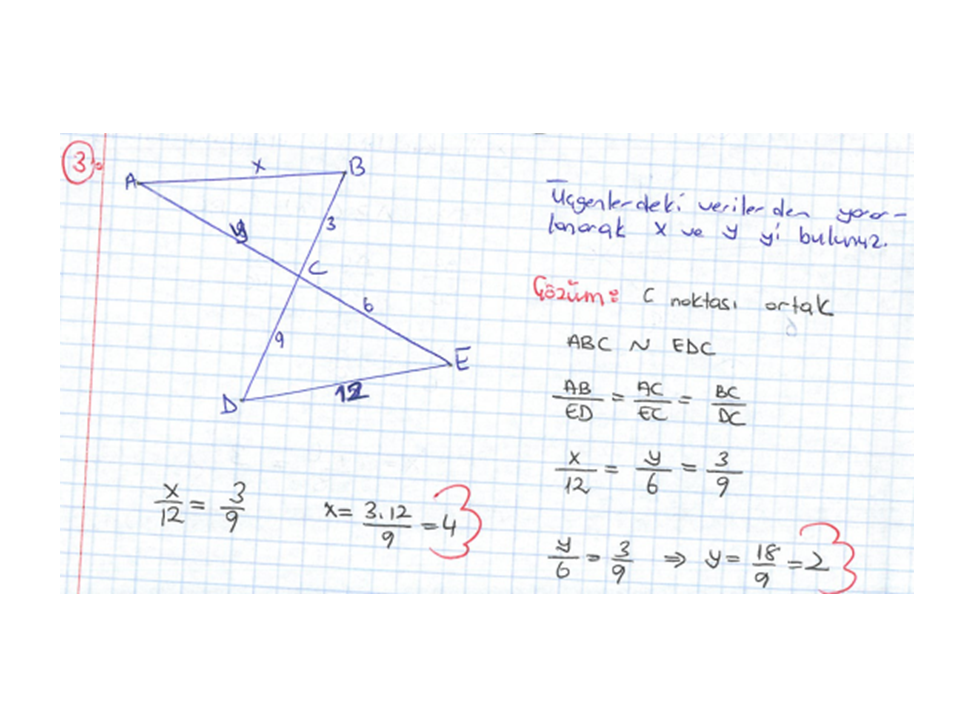 3:
A
x
B
y
3
C
6
9
E
12
D
Üçgenlerdeki verilerden yarar-
lanarak x ve y yi bulunuz.
Çözüm: C noktası ortak
ABC ~ EDC
AB/ED = AC/EC = BC/DC
x/12 = y/6 = 3/9
x/12 = 3/9 x = 3.12/9 = 4
y/6 = 3/9 ⇒ y = 18/9 = 2